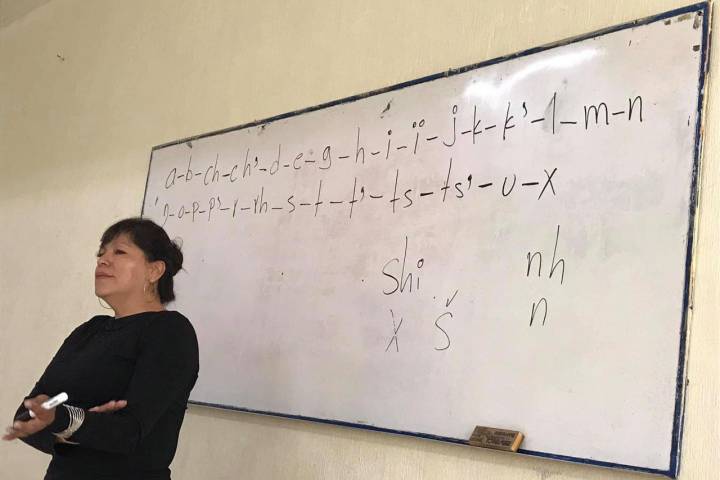 a-b-ch-ch'-d-e-g-h-i-ï-j-k-k'-l-m-n
ŋ-o-p-p'-r-rh-s-t-t'-ts-ts'-u-x
shi nh
x š n